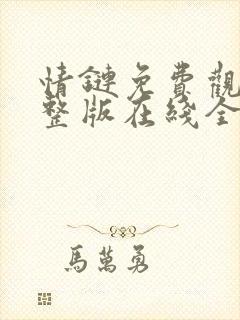 情鏈免費觀
整版在綫全
馬萬勇